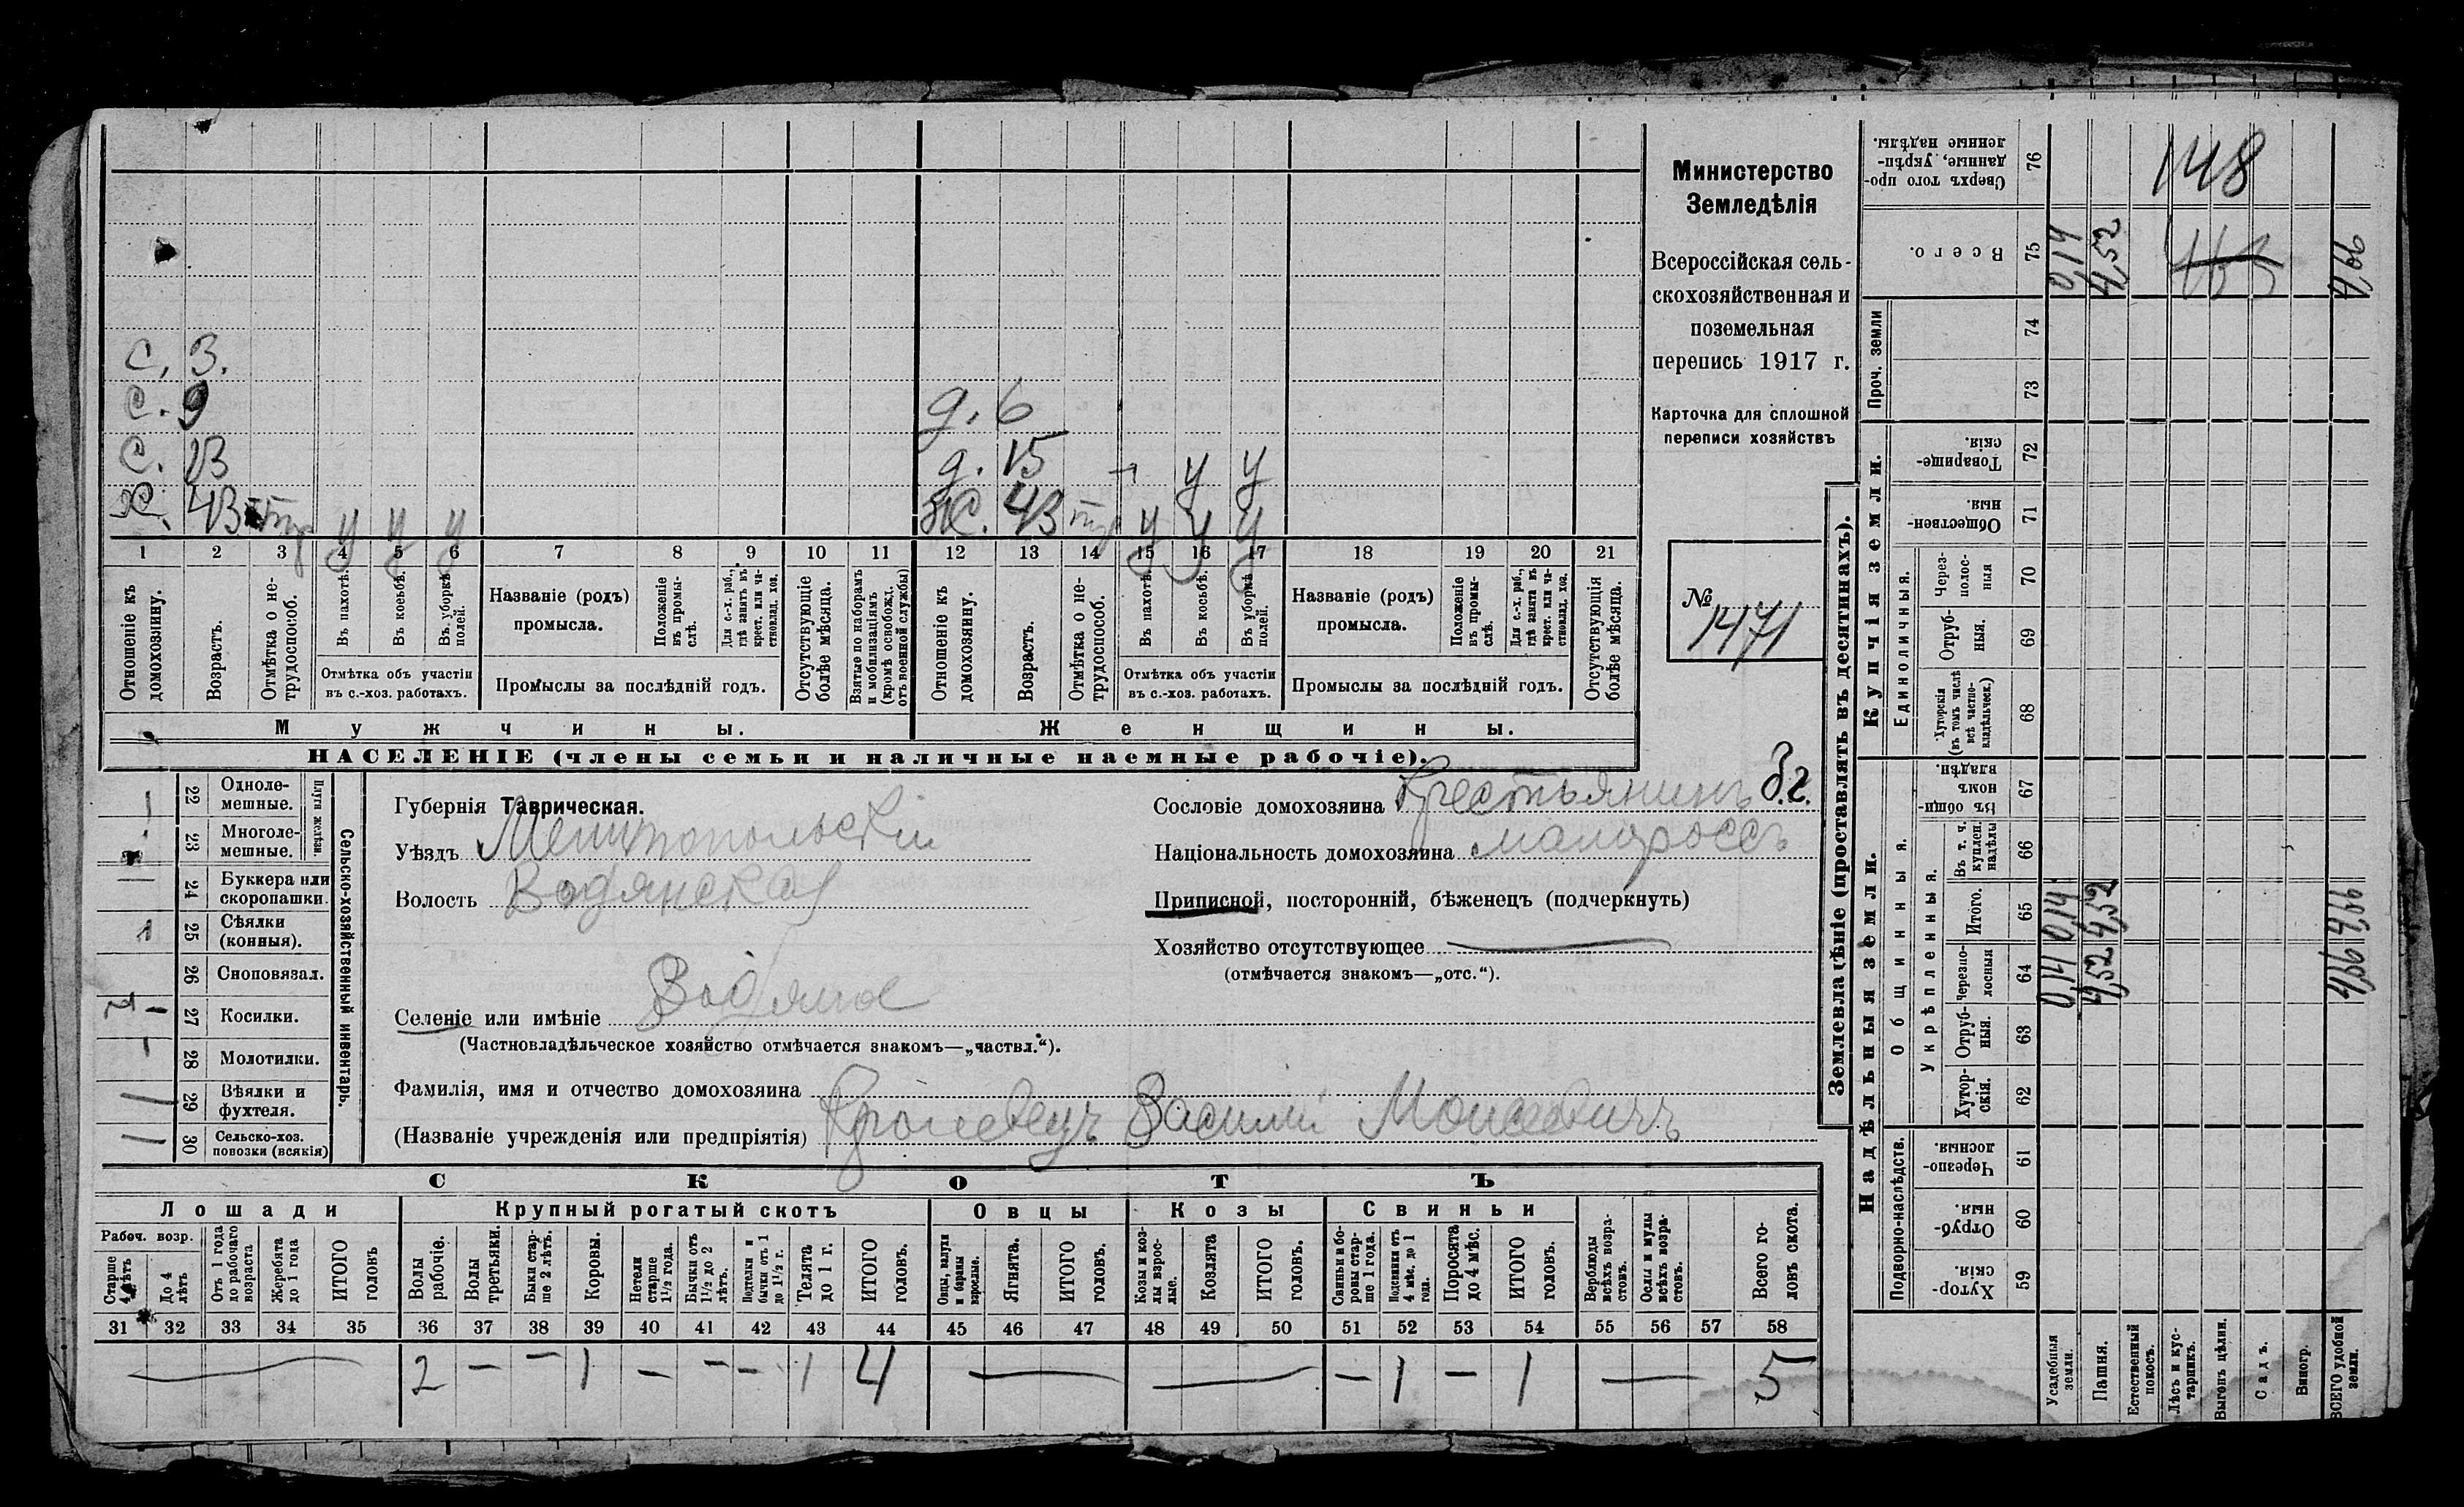 С. 3.
С. 9
С. 13
Х. 43 тр у у у
д. 6
д. 15 у у
Ж. 43 тр у у у
1 2 3 4 5 6 7 8 9 10 11 12 13 14 15 16 17 18 19 20 21
Отношеніе къ домохозяину.
Возрастъ.
Отмѣтка о нетрудоспособ.
Въ пахотѣ.
Въ косьбѣ.
Въ уборкѣ полей.
Отмѣтка объ участіи
въ с.-хоз. работахъ.
Названіе (родъ)
промысла.
Положеніе въ промыслѣ.
Для с.-х. раб., гдѣ занятъ въ крест. или частновлад. хоз.
Промыслы за послѣдній годъ.
Отсутствующіе болѣе мѣсяца.
Взятые по наборамъ и мобилизаціямъ (кромѣ освобожд. отъ военной службы)
Отношеніе къ домохозяину.
Возрастъ.
Отмѣтка о нетрудоспособ.
Въ пахотѣ.
Въ косьбѣ.
Въ уборкѣ полей.
Отмѣтка объ участіи
въ с.-хоз. работахъ.
Названіе (родъ)
промысла.
Положеніе въ промыслѣ.
Для с.-х. раб., гдѣ занята въ крест. или частновлад. хоз.
Промыслы за послѣдній годъ.
Отсутствующія болѣе мѣсяца.
Мужчины.
Женщины.
НАСЕЛЕНІЕ (члены семьи и наличные наемные рабочіе).
Министерство
Земледѣлія
Всероссійская сель-
скохозяйственная и
поземельная
перепись 1917 г.
Карточка для сплошной
переписи хозяйствъ
№
1471
22 Одноле-
мешные.
23 Многоле-
мешные.
Плуги желѣзн.
24 Буккера или
скоропашки.
1 25 Сѣялки
(конныя).
26 Сноповязал.
27 Косилки.
28 Молотилки.
29 Вѣялки и
фухтеля.
30 Сельско-хоз.
повозки (всякія)
Сельско-хозяйственный инвентарь.
Губернія Таврическая.
Уѣздъ Мелитопольскій
Волость Водянская
Селеніе или имѣніе Водяное
(Частновладѣльческое хозяйство отмѣчается знакомъ—„частвл.“).
Фамилія, имя и отчество домохозяина
(Названіе учрежденія или предпріятія) Кролевецъ Василій Моисеевичъ
Сословіе домохозяина Крестьянинъ
Національность домохозяина малороссъ
Приписной, посторонній, бѣженецъ (подчеркнуть)
Хозяйство отсутствующее
(отмѣчается знакомъ—„отс.“).
СКОТЪ
Лошади
Крупный рогатый скотъ
Овцы
Козы
Свиньи
Рабоч. возр.
Старше 4 лѣтъ
До 4 лѣтъ
Отъ 1 года до рабочаго возраста
Жеребята до 1 года
ИТОГО головъ
Волы рабочіе.
Волы третьяки.
Быки старше 2 лѣтъ.
Коровы.
Нетели старше 1½ года.
Бычки отъ 1½ до 2 лѣтъ.
Подтелки и бычки отъ 1 до 1½ г.
Телята до 1 г.
ИТОГО головъ.
Овцы, валухи и бараны взрослые.
Ягнята.
ИТОГО головъ.
Козы и козлы взрослые.
Козлята
ИТОГО головъ.
Свиньи и боровы старше 1 года.
Подсвинки отъ 4 мѣс. до 1 года.
Поросята до 4 мѣс.
ИТОГО головъ.
Верблюды всѣхъ возрастовъ.
Ослы и мулы всѣхъ возрастовъ.
Всего головъ скота.
31 32 33 34 35 36 37 38 39 40 41 42 43 44 45 46 47 48 49 50 51 52 53 54 55 56 57 58
2 — — 1 — — — 1 4 — — — 1 — 1 — 5
Землевладѣніе (проставлять въ десятинахъ).
Купчія земли.
Надѣльныя земли.
Проч. земли
Единоличныя.
Общинныя.
Укрѣпленныя.
Подворно-наслѣдств.
Сверхъ того проданные, укрѣпленные надѣлы. 76
148
Всего. 75 0,14 4,52 4,66
74
73
Товарищескія. 72
Общественныя. 71
Черезполосныя 70
Отрубныя. 69
Хуторскія (въ томъ числѣ всѣ частновладѣльческ.) 68
Въ общинномъ владѣн. 67
Въ т. ч. куплен. надѣлы 66
Итого. 65 0,14 4,52 4,66
Черезполосныя 64 0,14 4,52 4,66
Отрубныя. 63
Хуторскія. 62
Черезполосныя. 61
Отрубныя. 60
Хуторскія. 59
Усадебныя земли.
Пашня.
Естественный покосъ.
Лѣсъ и кустарникъ.
Выгонъ цѣлин.
Садъ.
Виногр.
ВСЕГО удобной земли.